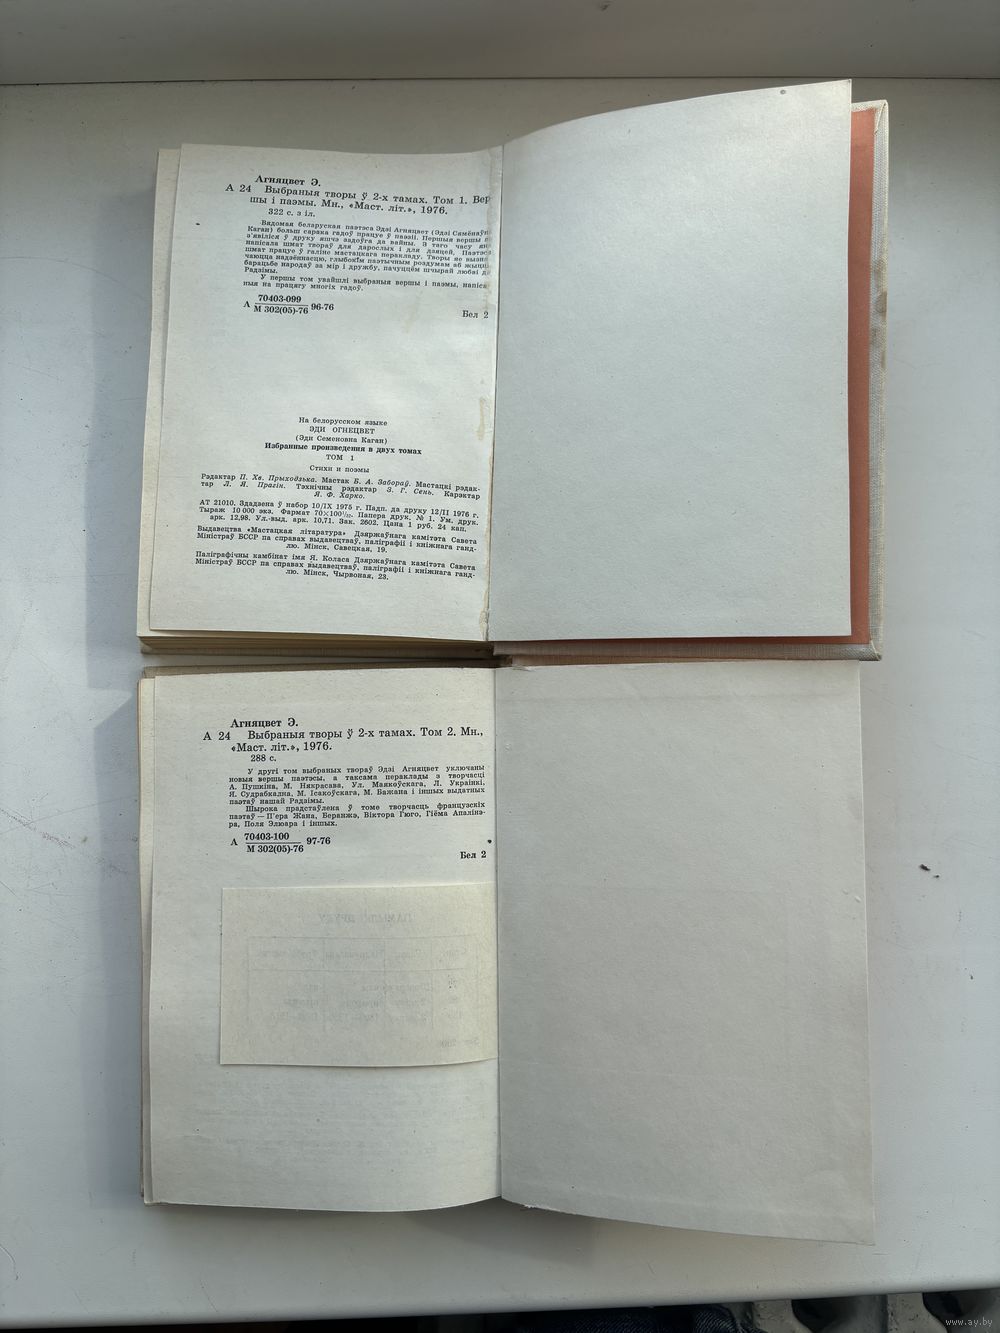 Агняцвет Э.
А 24 Выбраныя творы ў 2-х тамах. Том 1. Вер-
шы і паэмы. Мн., «Маст. літ.», 1976.
322 с. з іл.
Вядомая беларуская паэтэса Эдзі Агняцвет (Эдзі Сямёнаўн
Каган) больш сарака гадоў працуе ў паэзіі. Першыя вершы
з'явіліся ў друку яшчэ задоўга да вайны. З таго часу яна
напісала шмат твораў для дарослых і для дзяцей. Паэтэса
шмат працуе ў галіне мастацкага перакладу. Творы яе вызна
чаюцца надзённасцю, глыбокім паэтычным роздумам аб жыцці,
барацьбе народаў за мір і дружбу, пачуццём шчырай любві да
Радзімы.
У першы том увайшлі выбраныя вершы і паэмы, напіса
ныя на працягу многіх гадоў.
А 70403-099 96-76
М 302(05)-76
Бел 2
На белорусском языке
ЭДИ ОГНЕЦВЕТ
(Эди Семеновна Каган)
Избранные произведения в двух томах
ТОМ 1
Стихи и поэмы
Рэдактар П. Хв. Прыходзька. Мастак Б. А. Забораў. Мастацкі рэдак-
тар Л. Я. Прагін. Тэхнічны рэдактар З. Г. Сень. Карэктар
Я. Ф. Харко.
АТ 21010. Здадзена ў набор 10/IX 1975 г. Падп. да друку 12/II 1976 г.
Тыраж 10 000 экз. Фармат 70×100¹/₃₂. Папера друк. № 1. Ум. друк.
арк. 12,98. Ул.-выд. арк. 10,71. Зак. 2602. Цана 1 руб. 24 кап.
Выдавецтва «Мастацкая літаратура» Дзяржаўнага камітэта Савета
Міністраў БССР па справах выдавецтваў, паліграфіі і кніжнага ганд-
лю. Мінск, Савецкая, 19.
Паліграфічны камбінат імя Я. Коласа Дзяржаўнага камітэта Савета
Міністраў БССР па справах выдавецтваў, паліграфіі і кніжнага ганд-
лю. Мінск, Чырвоная, 23.
Агняцвет Э.
А 24 Выбраныя творы ў 2-х тамах. Том 2. Мн.,
«Маст. літ.», 1976.
288 с.
У другі том выбраных твораў Эдзі Агняцвет уключаны
новыя вершы паэтэсы, а таксама пераклады з творчасці
А. Пушкіна, М. Някрасава, Ул. Маякоўскага, Л. Украінкі,
Я. Судрабкална, М. Ісакоўскага, М. Бажана і іншых выдатных
паэтаў нашай Радзімы.
Шырока прадстаўлена ў томе творчасць французскіх
паэтаў — П'ера Жана, Беранжэ, Віктора Гюго, Гіёма Апалінэ-
ра, Поля Элюара і іншых.
А 70403-100 97-76
М 302(05)-76
Бел 2
www.ay.by